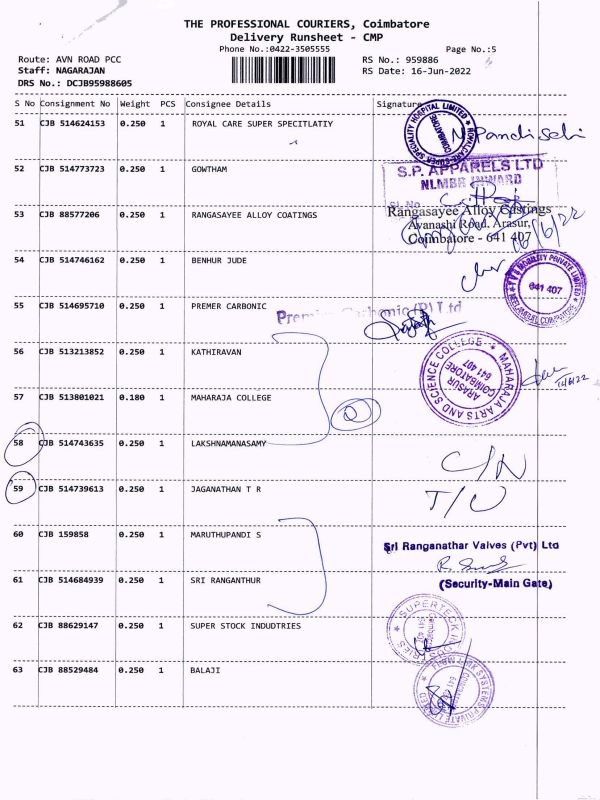 THE PROFESSIONAL COURIERS, Coimbatore
Delivery Runsheet - CMP
Phone No.:0422-3505555
Page No.:5
Route: AVN ROAD PCC
RS No.: 959886
Staff: NAGARAJAN
RS Date: 16-Jun-2022
DRS No.: DCJB95988605
S No Consignment No Weight PCS Consignee Details Signature
51 CJB 514624153 0.250 1 ROYAL CARE SUPER SPECITLATIY
52 CJB 514773723 0.250 1 GOWTHAM
S.P. APPARELS LTD
NLMBR INWARD
Sl.No
53 CJB 88577206 0.250 1 RANGASAYEE ALLOY COATINGS
Rangasayee Alloy Castings
Avanashi Road, Arasur,
Coimbatore - 641 407
54 CJB 514746162 0.250 1 BENHUR JUDE
641 407
55 CJB 514695710 0.250 1 PREMER CARBONIC
Premier Carbonic (P) Ltd
56 CJB 513213852 0.250 1 KATHIRAVAN
MAHARAJA ARTS AND SCIENCE COLLEGE
ARASUR
COIMBATORE
641 407
57 CJB 513801021 0.180 1 MAHARAJA COLLEGE
58 CJB 514743635 0.250 1 LAKSHNAMANASAMY
C/N
59 CJB 514739613 0.250 1 JAGANATHAN T R
T/U
60 CJB 159858 0.250 1 MARUTHUPANDI S
Sri Ranganathar Valves (Pvt) Ltd
61 CJB 514684939 0.250 1 SRI RANGANTHUR
(Security-Main Gate)
62 CJB 88629147 0.250 1 SUPER STOCK INDUDTRIES
63 CJB 88529484 0.250 1 BALAJI